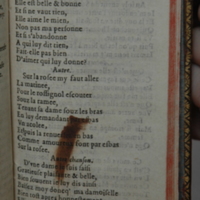 Elle est belle & bonne
Et si ne vaut rien,
Elle aime le mien.
Non pas ma personne
Et si s'abandonne
A qui luy dit rien,
Fait elle pas bien
D'aimer qui luy donne?
Autre.
Sur la rosee my faut aller
La matinee,
Pour le rossignol escouter
Sous la ramee,
Tenant sa dame sous les bras
En luy demandant
Vn
Depuis la
Comme amoureux font par esbat
Sur la rosee,
Autre chanson.
D'vne dame
Gratieuse plaisante & belle,
luy dis ainsi
ma damoiselle